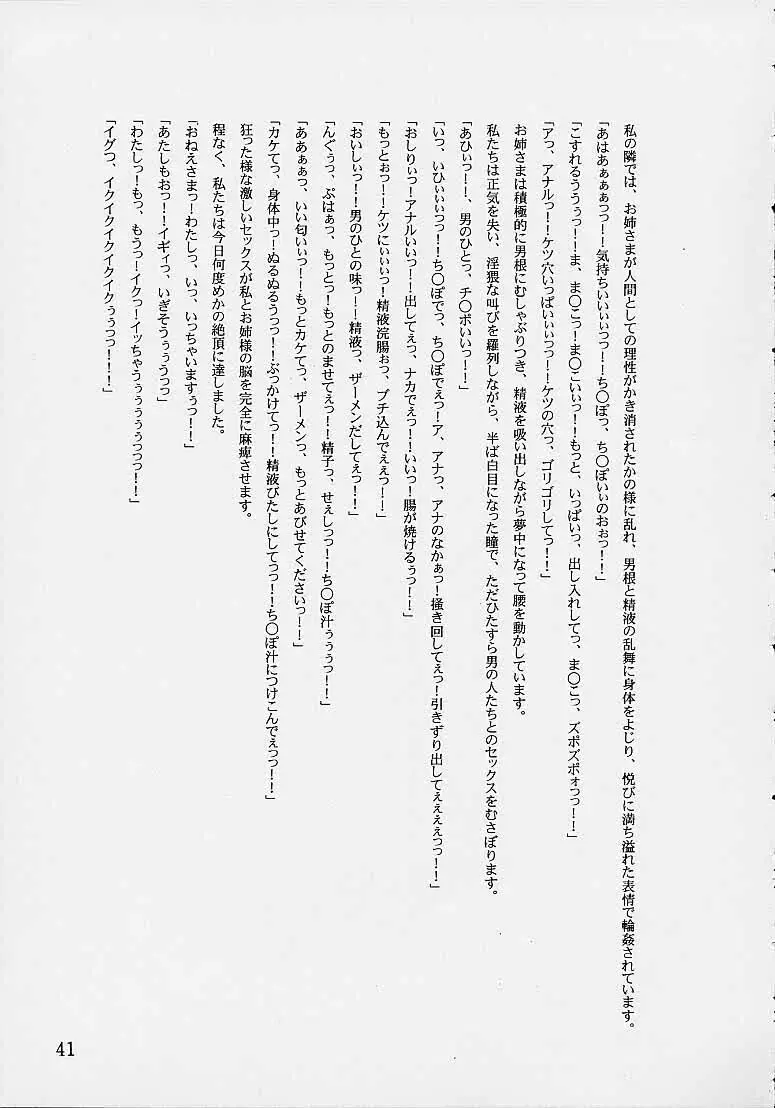 私の隣では、お姉さまが人間としての理性がかき消されたかの様に乱れ、男根と精液の乱舞に身体をよじり、悦びに満ち溢れた表情で輪姦されています。
「あはあぁぁぁっっ！！気持ちいいぃぃっっ！！ち〇ぽっ、ち〇ぽいぃのおぉっ！！」
「こすれるううぅっ！！ま、ま〇こっ！ま〇こいぃっ！！もっと、いっぱいっ、出し入れしてっ、ま〇こっ、ズポズポォっっ！！」
「アっ、アナルっ！！ケツ穴いっぱいぃぃっっ！！ケツの穴っ、ゴリゴリしてっ！！」
お姉さまは積極的に男根にむしゃぶりつき、精液を吸い出しながら夢中になって腰を動かしています。
私たちは正気を失い、淫猥な叫びを羅列しながら、半ば白目になった瞳で、ただひたすら男の人たちとのセックスをむさぼります。
「あひぃっ！！、男のひとっ、チ〇ポいいっ！！」
「いっ、いひぃぃぃっっ！！ち〇ぽでっ、ち〇ぽでぇっ！ア、アナっ、アナのなかぁっ！掻き回してぇっ！引きずり出してえぇぇぇっっ！！」
「おしりぃっ！アナルいいっ！！出してぇっ、ナカでぇっ！！いいっ！腸が焼けるぅっ！！」
「もっとぉっ！！ケツにぃぃぃっ！精液浣腸ぉっ、ブチ込んでぇぇっ！！」
「おいしぃっ！！男のひとの味っ！！精液っ、ザーメンだしてぇっ！！」
「んぐぅっ、ぷはぁっ、もっとっ！もっとのませてぇっ！！精子っ、せぇしっっ！！ち〇ぽ汁ぅぅぅっ！！」
「ああぁぁっ、いい匂いぃっ！！もっとカケてっ、ザーメンっ、もっとあびせてくださいっ！！」
「カケてっ、身体中っ！ぬるぬるうっっ！！ぶっかけてっ！！精液びたしにしてっっ！！ち〇ぽ汁につけこんでぇっっ！！」
狂った様な激しいセックスが私とお姉様の脳を完全に麻痺させます。
程なく、私たちは今日何度めかの絶頂に達しました。
「おねえさまっ！わたしっ、いっ、いっちゃいますぅっ！！」
「あたしもおっ！！イギィっ、いぎそうぅぅうっっ」
「わたしっ！もっ、もうっ！イクっ！イッちゃうぅぅぅぅぅっっっ！！」
「イグっ、イクイクイクイクイクぅぅっっ！！！」
41